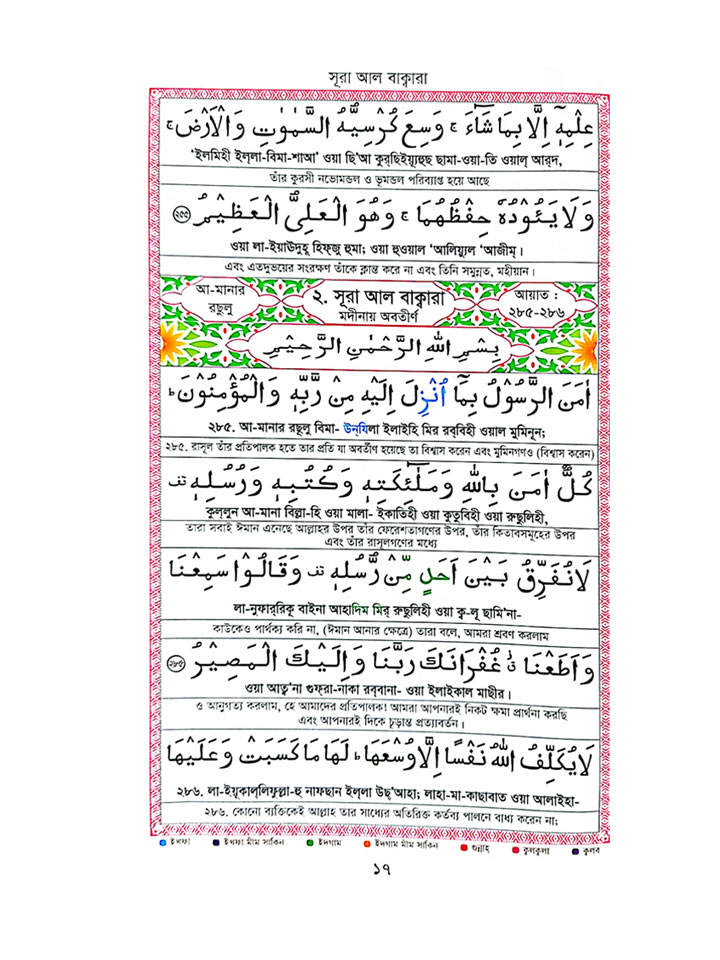 সূরা আল বাক্বারা
عِلْمِهٖٓ اِلَّا بِمَا شَآءَ ۚ وَسِعَ كُرْسِيُّهُ السَّمٰوٰتِ وَالْاَرْضَ ۚ
‘ইলমিহী ইল্লা-বিমা-শাআ’ ওয়া ছি’আ কুর্‌ছিইয়্যুহুছ ছামা-ওয়া-তি ওয়াল্ আর্‌দ,
তাঁর কুরসী নভোমন্ডল ও ভূমন্ডল পরিব্যাপ্ত হয়ে আছে
وَلَا يَـُٔوْدُهٗ حِفْظُهُمَا ۚ وَهُوَ الْعَلِىُّ الْعَظِيْمُ ﴿২৫৫﴾
ওয়া লা-ইয়াঊদুহূ হিফ্‌জু হুমা; ওয়া হুওয়াল ‘আলিয়্যুল ‘আজীম্।
এবং এতদুভয়ের সংরক্ষণ তাঁকে ক্লান্ত করে না এবং তিনি সমুন্নত, মহীয়ান।
আ-মানার রছূলু
২. সূরা আল বাক্বারা
মদীনায় অবতীর্ণ
আয়াত : ২৮৫-২৮৬
بِسْمِ اللّٰهِ الرَّحْمٰنِ الرَّحِيْمِ
اٰمَنَ الرَّسُوْلُ بِمَآ اُنْزِلَ اِلَيْهِ مِنْ رَّبِّهٖ وَالْمُؤْمِنُوْنَ ؕ
২৮৫. আ-মানার রছূলু বিমা- উন্‌যিলা ইলাইহি মির রব্‌বিহী ওয়াল মুমিনূন;
২৮৫. রাসূল তাঁর প্রতিপালক হতে তার প্রতি যা অবতীর্ণ হয়েছে তা বিশ্বাস করেন এবং মুমিনগণও (বিশ্বাস করেন)
كُلٌّ اٰمَنَ بِاللّٰهِ وَمَلٰٓئِكَتِهٖ وَكُتُبِهٖ وَرُسُلِهٖ قف
কুল্লুন আ-মানা বিল্লা-হি ওয়া মালা- ইকাতিহী ওয়া কুতুবিহী ওয়া রুছুলিহী,
তারা সবাই ঈমান এনেছে আল্লাহর উপর তাঁর ফেরেশতাগণের উপর, তাঁর কিতাবসমূহের উপর
এবং তাঁর রাসূলগণের মধ্যে
لَا نُفَرِّقُ بَيْنَ اَحَدٍ مِّنْ رُّسُلِهٖ قف وَقَالُوْا سَمِعْنَا
লা-নুফার্‌রিকু বাইনা আহাদিম মির্ রুছুলিহী ওয়া ক্ব-লূ ছামি’না-
কাউকেও পার্থক্য করি না, (ঈমান আনার ক্ষেত্রে) তারা বলে, আমরা শ্রবণ করলাম
وَاَطَعْنَا ق غُفْرَانَكَ رَبَّنَا وَاِلَيْكَ الْمَصِيْرُ ﴿২৮৫﴾
ওয়া আত্ব’না গুফ্‌রা-নাকা রব্‌বানা- ওয়া ইলাইকাল মাছীর।
ও আনুগত্য করলাম, হে আমাদের প্রতিপালক! আমরা আপনারই নিকট ক্ষমা প্রার্থনা করছি
এবং আপনারই দিকে চূড়ান্ত প্রত্যাবর্তন।
لَا يُكَلِّفُ اللّٰهُ نَفْسًا اِلَّا وُسْعَهَا ؕ لَهَا مَا كَسَبَتْ وَعَلَيْهَا
২৮৬. লা-ইয়ূকাল্‌লিফুল্লা-হু নাফছান ইল্‌লা উছ্‌’আহা; লাহা-মা-কাছাবাত ওয়া আলাইহা-
২৮৬. কোনো ব্যক্তিকেই আল্লাহ তার সাধ্যের অতিরিক্ত কর্তব্য পালনে বাধ্য করেন না;
ইখফা ইখফা মীম সাকিন ইদগাম ইদগাম মীম সাকিন গুন্নাহ্ কুলকুলা কুলব
১৭